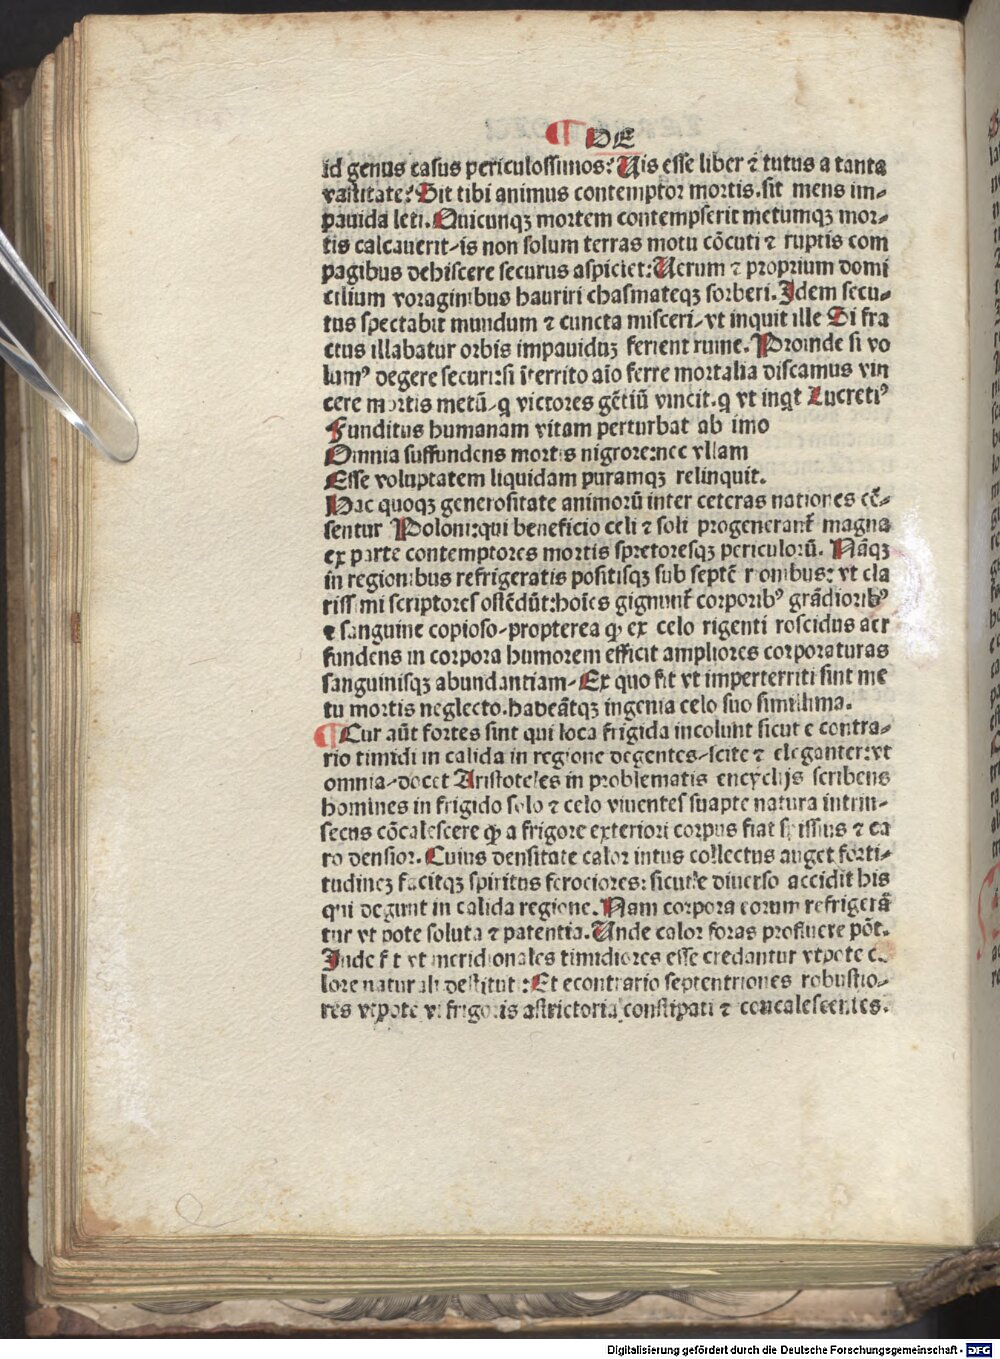 ¶ DE
id genus casus periculosissimos? Uis esse liber ⁊ tutus a tanta
vastitate? Sit tibi animus contemptor mortis. sit mens im⸗
pauida leti. Quicunqꝫ mortem contempserit metumqꝫ mor⸗
tis calcauerit/is non solum terras motu cōcuti ⁊ ruptis com
pagibus dehiscere securus aspiciet: Uerum ⁊ proprium domi
cilium voraginibus hauriri chasmateqꝫ sorberi. Idem secu⸗
tus spectabit mundum ⁊ cuncta misceri/vt inquit ille Si fra
ctus illabatur orbis impauiduꝫ ferient ruine. Proinde si vo
lumꝰ degere securi:si īterrito aīo ferre mortalia discamus vin
cere mortis metū/q victores gētiū vincit.q vt inqt Lucretiꝰ
Funditus humanam vitam perturbat ab imo
Omnia suffundens mortis nigrore:nec vllam
Esse voluptatem liquidam puramqꝫ relinquit.
Hac quoqꝫ generositate animorū inter ceteras nationes cē⸗
sentur Poloni:qui beneficio celi ⁊ soli progenerant᷑ magna
ex parte contemptores mortis spretoresqꝫ periculorū. Nāqꝫ
in regionibus refrigeratis positisqꝫ sub septētrionibus: vt cla
rissimi scriptores ostēdūt:hoīes gignunt᷑ corporibꝰ grādioribꝰ
e sanguine copioso/propterea ꝙ ex celo rigenti roscidus aer
fundens in corpora humorem efficit ampliores corporaturas
sanguinisqꝫ abundantiam/ Ex quo fit vt imperterriti sint me
tu mortis neglecto.habeātqꝫ ingenia celo suo simillima.
¶ Cur aūt fortes sint qui loca frigida incolunt sicut e contra⸗
rio timidi in calida in regione degentes/scite ⁊ eleganter:vt
omnia/docet Aristoteles in problematis encyclijs scribens
homines in frigido solo ⁊ celo viuentes suapte natura intrin⸗
secus cōcalescere ꝙ a frigore exteriori corpus fiat spissius ⁊ ca
ro densior. Cuius densitate calor intus collectus auget forti⸗
tudineꝫ facitqꝫ spiritus ferociores: sicut e diuerso accidit his
qui degunt in calida regione. Nam corpora eorum refrigerā
tur vt pote soluta ⁊ patentia. Unde calor foras profluere pōt.
Inde fit vt meridionales timidiores esse credantur vtpote ca
lore naturali destituti: Et econtrario septentriones robustio⸗
res vtpote vi frigoris astrictoria constipati ⁊ concalescentes.
Digitalisierung gefördert durch die Deutsche Forschungsgemeinschaft - DFG